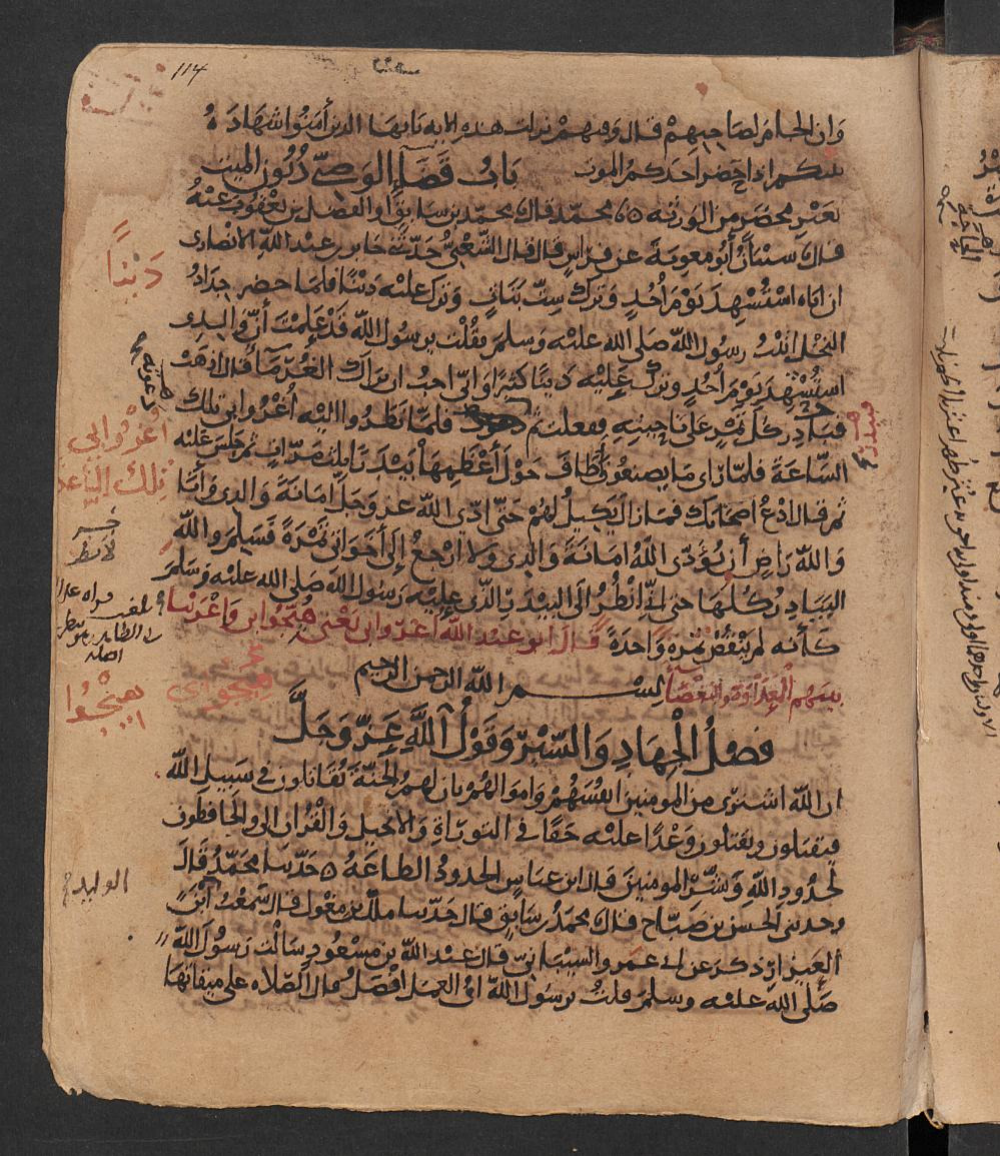 114
وان الجام لصاحبهم قال وفيهم نزلت هذه الايه يايها الذين أمنوا شهادة
بينكم اذا حضر احدكم الموت باب قضاء الوصي ديون الميت
بغير محضر من الورثه محمد قال محمد بن سابق او الفضل بن يعقوب عنه
قال شيبان أبو معوية عن فراس قال قال الشعبي حدثني جابر بن عبد الله الانصارى
ان اباه استشهد يوم أحد وترك ست بنات وترك عليه دينا فلما حضر جداد
النخل اتيت رسول الله صلى الله عليه وسلم فقلت يرسول الله قد علمت أن والدى
استشهد يوم أحد وترك عليه دينا كثيرا وانى احب ان يراك الغرما قال اذهب
فبيدر كل تمر على ناحيته ففعلت ثم دعوت فلما نظروا اليه أغروا بى تلك
الساعة فلما راى ما يصنعون أطاف حول أعظمها بيدرا ثلث مرات ثم جلس عليه
ثم قال ادع اصحابك فما زال يكيل لهم حتى ادى الله عز وجل امانة والدى وأنا
والله راض أن يؤدى الله امانة والدى ولا ارجع إلى أخواتى تمرة فسلم والله
البيادر كلها حتى انى انظر الى البيدر الذى عليه رسول الله صلى الله عليه وسلم
كأنه لم ينقص تمرة واحدة قال ابو عبد الله اغروا بى يعنى هيجوا بى واغرينا
بينهم العداوة والبغضا بسم الله الرحمن الرحيم
فضل الجهاد والسير وقول الله عز وجل
ان الله اشترى من المومنين انفسهم واموالهم بان لهم الجنة يقاتلون في سبيل الله
فيقتلون ويقتلون وعدا عليه حقا في التوراة والانجيل والقران الى والحافظون
لحدود الله وبشر المومنين قال ابن عباس الحدود الطاعه حدثنا محمد قال
وحدثنى الحسن بن صباح قال محمد بن سابق قال حدثنا ملك بن مغول قال سمعت
العيزار ذكر عن ابى عمرو الشيبانى قال عبد الله بن مسعود سالت رسول الله
صلى الله عليه وسلم قلت يرسول الله اى العمل افضل قال الصلاه على ميقاتها
دينا
أغروا بى
تلك الساعة
هيجوا بى
هيجوا
الوليد